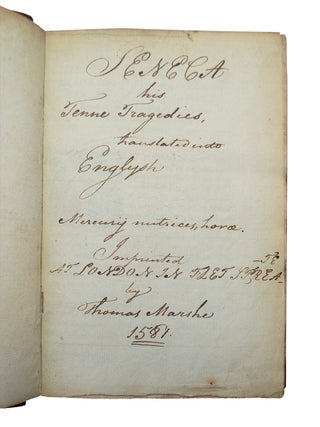 SENECA
his
Tenne Tragedies,
translated into
Englysh
Mercurij nutrices, horæ.
Imprinted
AT LONDON IN FLET STREA-TE
by
Thomas Marshe
1581.